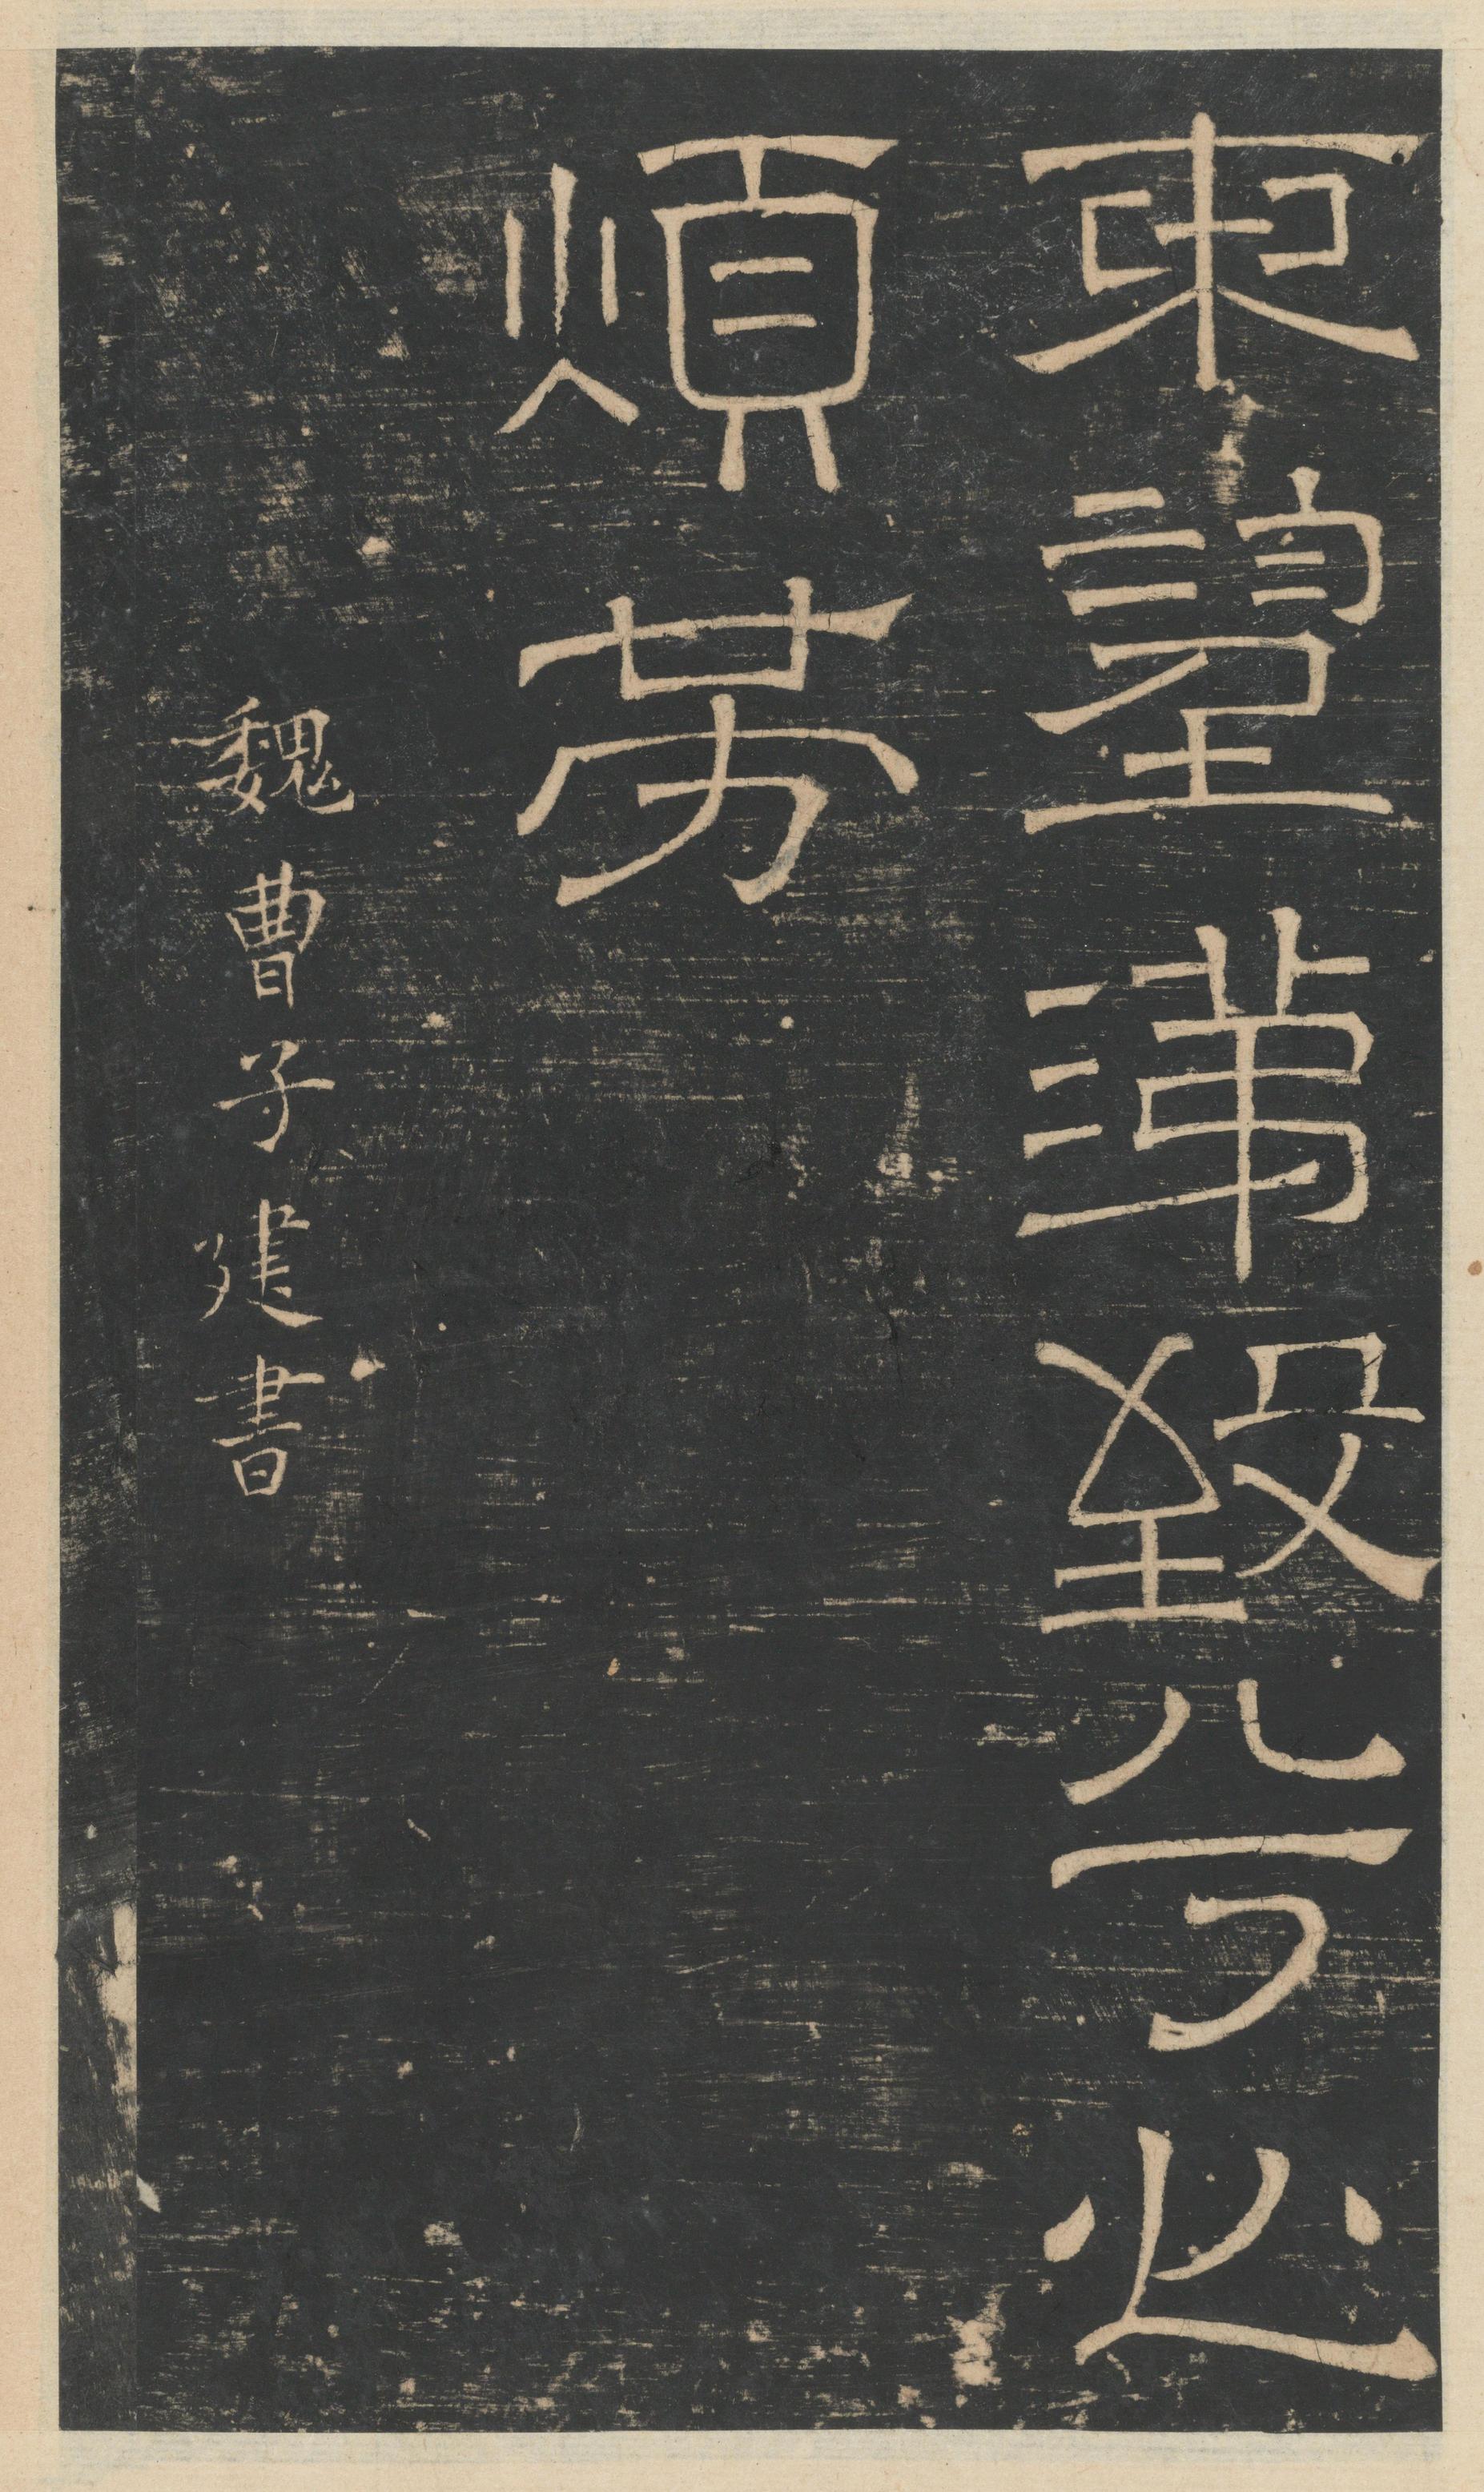 東望兮心
煩勞
魏曹子建書